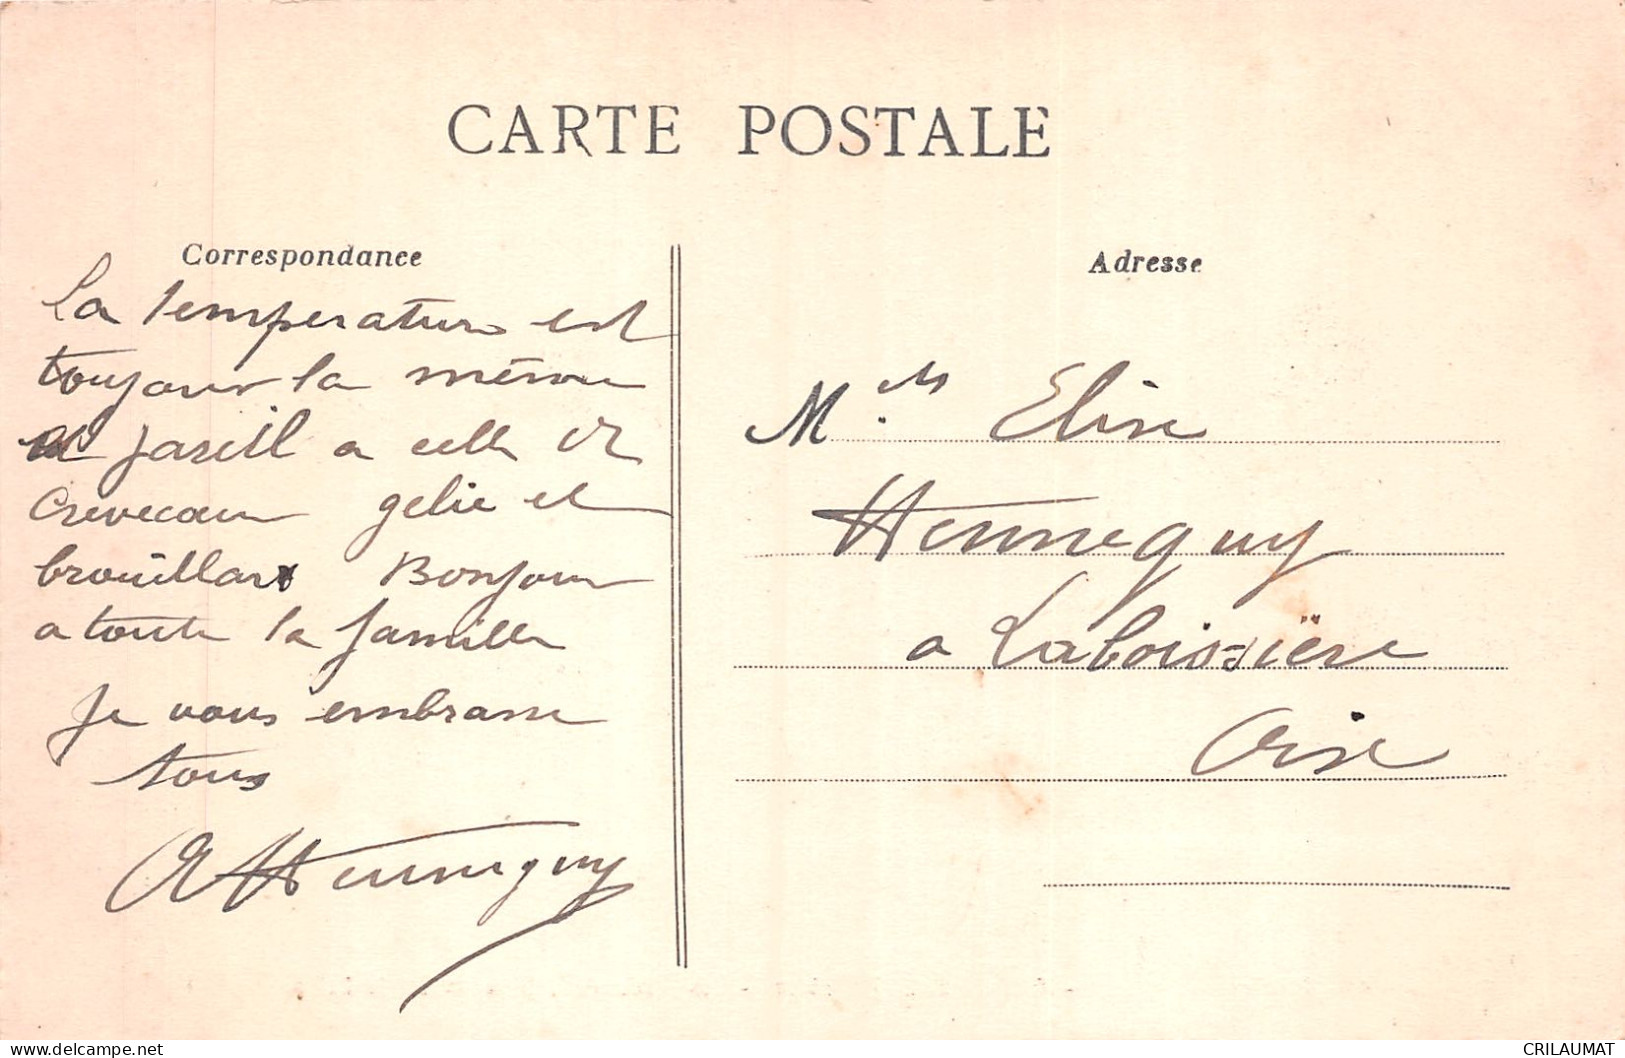 CARTE POSTALE
Correspondance
La temperature est
toujours la même
et pareil a celle de
Crevecoeur gelie et
brouillard Bonjour
a toute la famille
Je vous embrasse
tous
A Henneguy
Adresse
M. Elise
Henneguy
a Laboissière
Oise
delcampe.net
CRILAUMAT